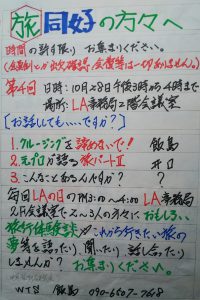 旅 同好の方々へ
時間の許す限り お集まり下さい。
(会員制とか出欠確認、会費等は一切ありません。)
第4回 日時:10月28日午後3時から4時まで
場所:LA事務局2階会議室
[お話してもいいですか?]
1. クルージングを諦めないで! 飯島
2. 元プロが語る旅パートⅡ 井口
3. こんなことあるんですか? ?
毎回LAの日のPM3:00~4:00 LA事務局
2F会議室で2~3人の方々に、おもしろい
旅行体験談やこれから行きたい旅の
夢等を語ったり、聞いたり 話し合ったり
しませんか? お集まり下さい。
WTS 飯島 090-6507-7168